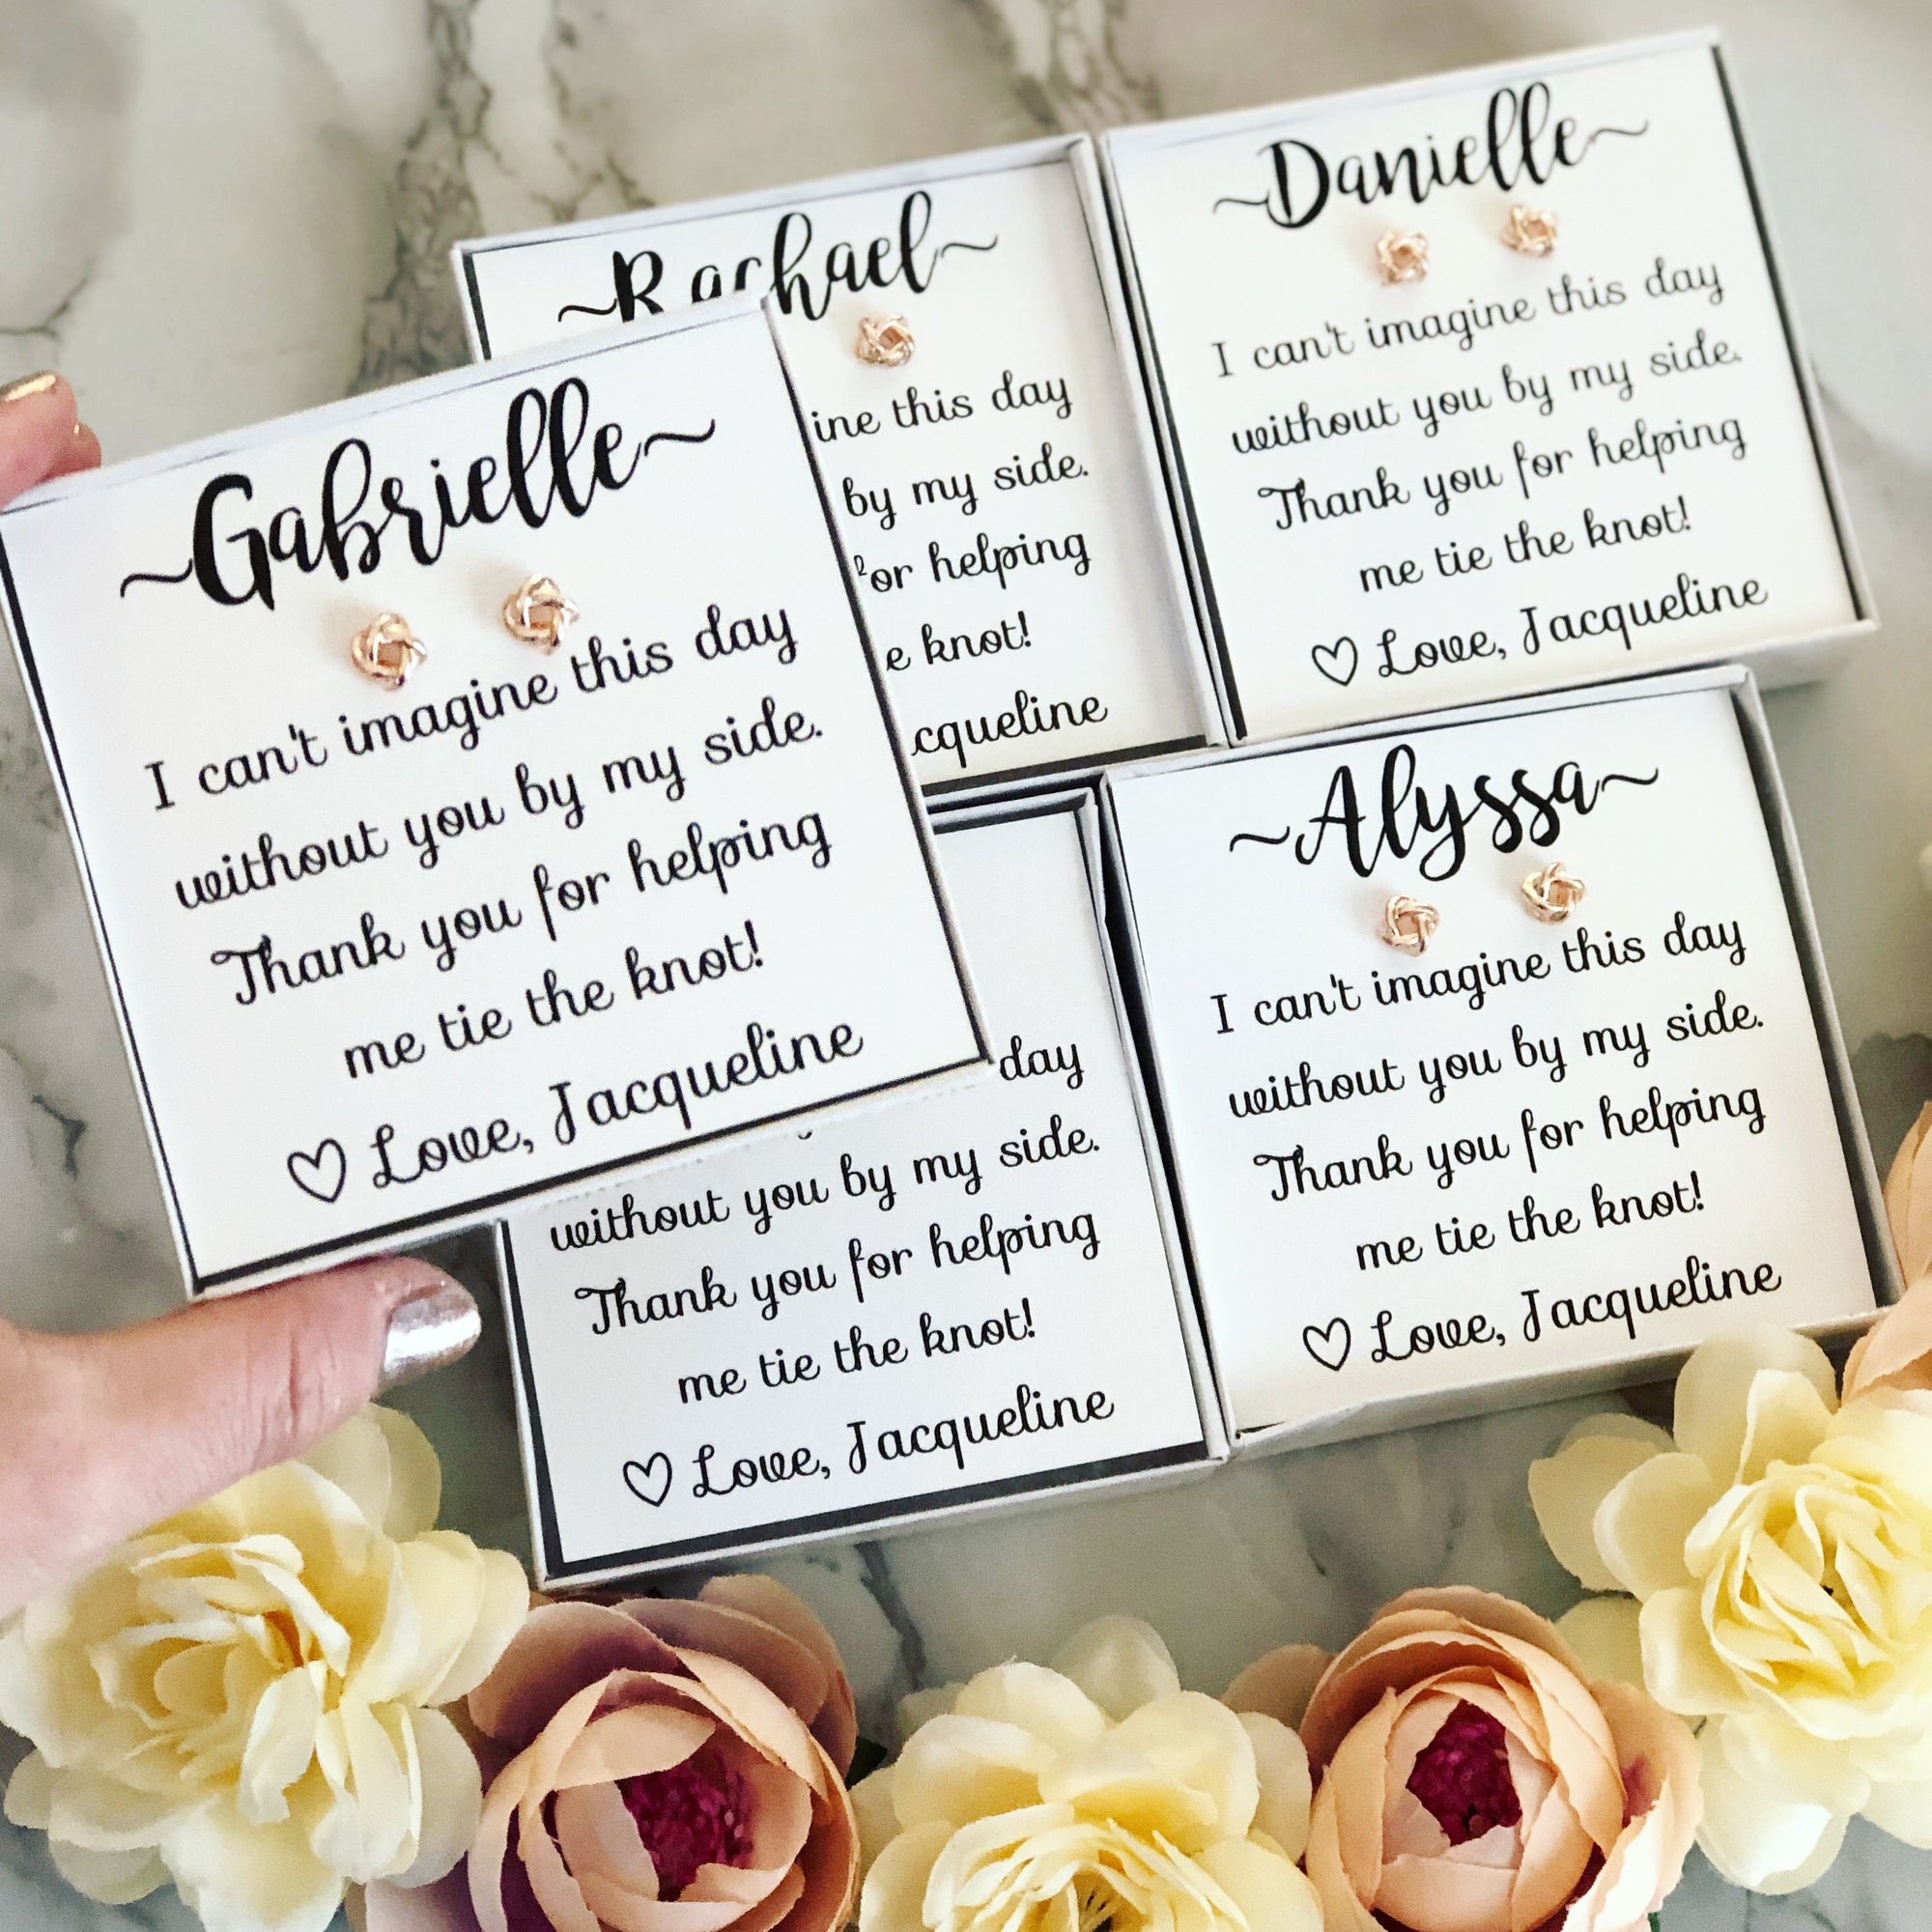 ~Gabrielle~
I can't imagine this day
without you by my side.
Thank you for helping
me tie the knot!
♡ Love, Jacqueline
~Rachael~
this day
by my side.
helping
knot!
~Danielle~
I can't imagine this day
without you by my side.
Thank you for helping
me tie the knot!
♡ Love, Jacqueline
day
without you by my side.
Thank you for helping
me tie the knot!
♡ Love, Jacqueline
~Alyssa~
I can't imagine this day
without you by my side.
Thank you for helping
me tie the knot!
♡ Love, Jacqueline